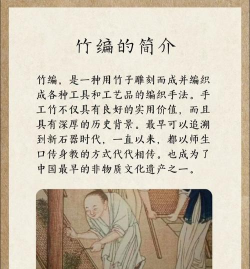 竹编的简介
竹编，是一种用竹子雕刻而成并编织
成各种工具和工艺品的编织手法。手
工竹不仅具有良好的实用价值，而且
具有深厚的历史背景。最早可以追溯
到新石器时代，一直以来，都以师生
口传身教的方式代代相传。也成为了
中国最早的非物质文化遗产之一。